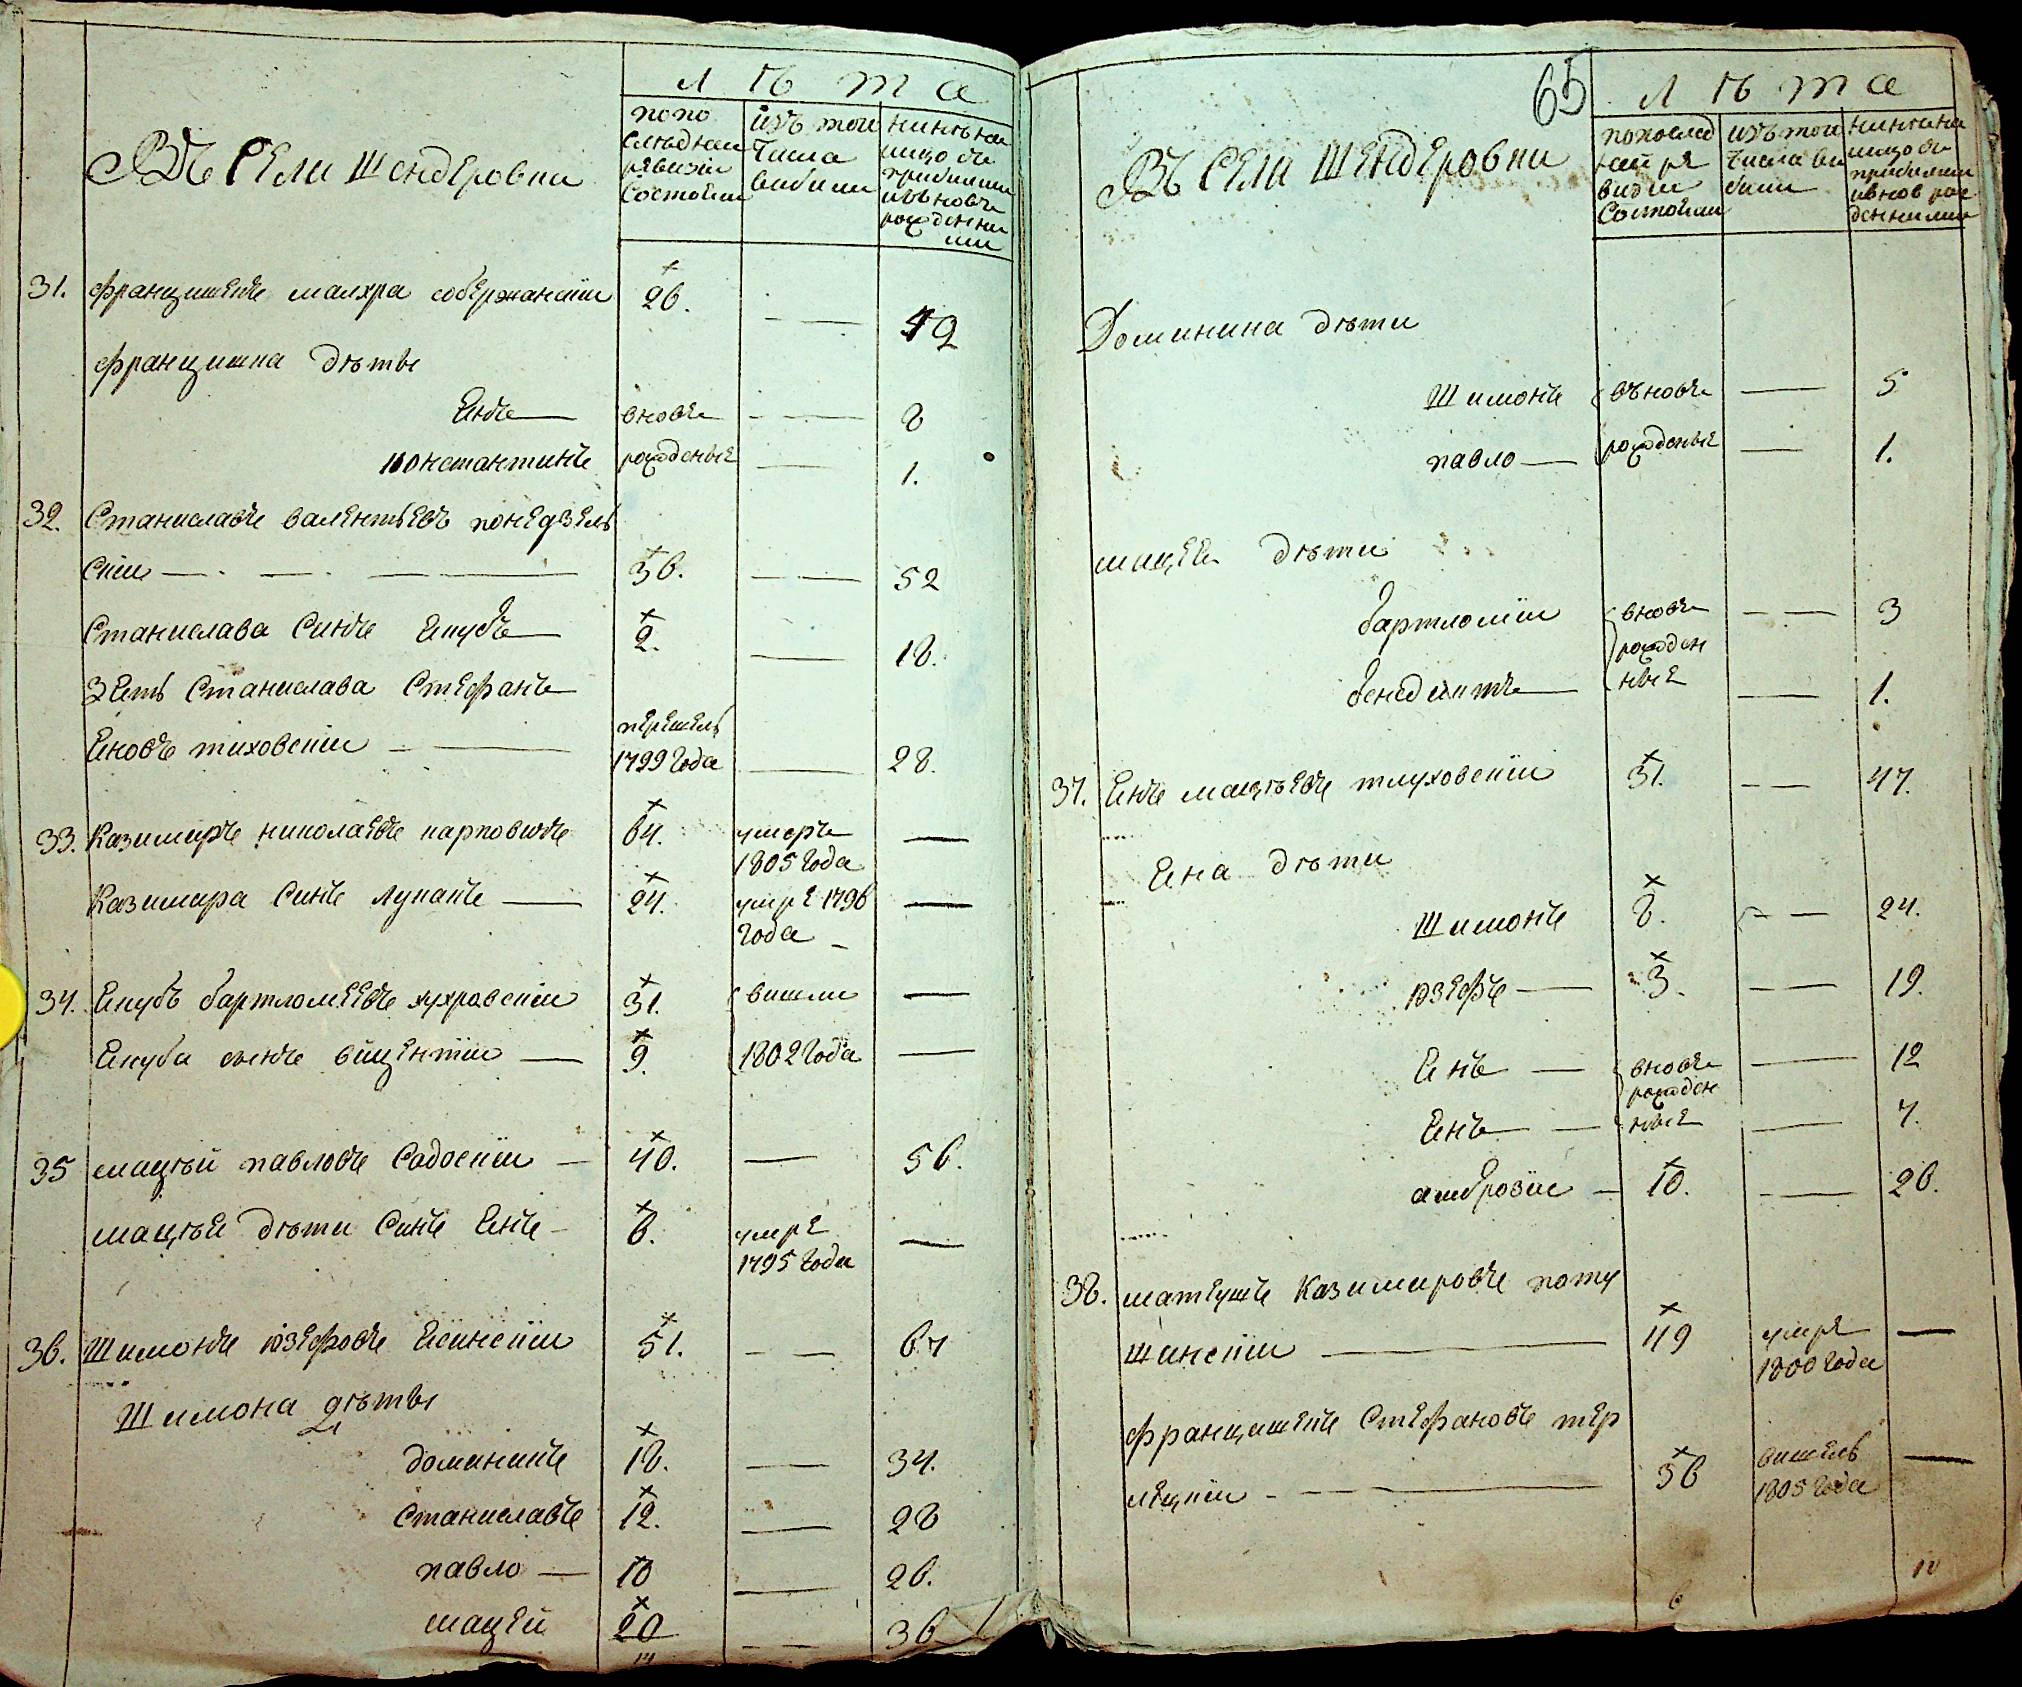 Лѣта
Въ Сели Шендеровки
попо
слѣднеи
ревизіи
состояли
изъ тои
числа
вибили
нинѣ на
лицо съ
прибилими
и въновъ
рожденни
ми
31. францишекъ малхра собержанскіи 26. — 42
францишка дѣты
Енъ — вновъ — 8
константинъ рожденые — 1.
32. Станиславъ валентыевъ понедзель
скіи — 36. — 52
Станислава Синъ Екубъ — 2. — 18.
Зеть Станислава Стефанъ
Еновъ тиховскіи — перешель
1799 года — 28.
33. Казимиръ николаевъ карповичъ 64. умеръ —
1805 года
Казимира Синъ лукашъ — 24. умре 1796 —
года
34. Екубъ бартломеевъ хухровскіи 31. вишли —
Екуба синъ вицентіи — 9. 1802 года —
35 мацѣй павловъ Садоскіи — 40. — 56.
мацѣя дѣти Синъ Енъ — 6. умре —
1795 года
36. Шимонъ юзефовъ Есинскіи 51. — 67
Шимона дѣты
доминикъ 18. — 34.
Станиславъ 12. — 28
павло — 10 — 26.
мацей 20 — 36
14
65
Лѣта
Въ Сели Шендеровки
попослед
неи ре
визіи
Состояли
изъ тои
числа ви
били
нинѣ на
лицо съ
прибилими
и внов рож
денними
Доминика дѣти
Шимонъ въновъ — 5
павло — рожденые — 1.
мацея дѣти
бартломіи вновъ — 3
рожден
бенедиктъ — ные — 1.
37. Енъ мацѣевъ тлуховскіи 31. — 47.
Ена дѣти
Шимонъ 8. — 24.
юзефъ — 3. — 19.
Енъ — вновъ — 12
рожден
Енъ — ные — 7.
амброзіи — 10. — 26.
38. матеушъ Казимировъ поту
шинскіи — 49 умре —
1800 года
францишекъ Стефановъ тер
лецкіи — 56 вишель —
1805 года
6 10